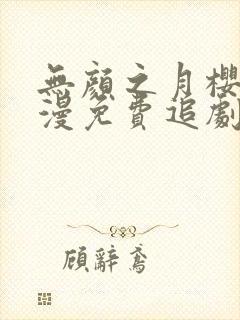 無顏之月櫻
漫免費追劇
顧辭鳶